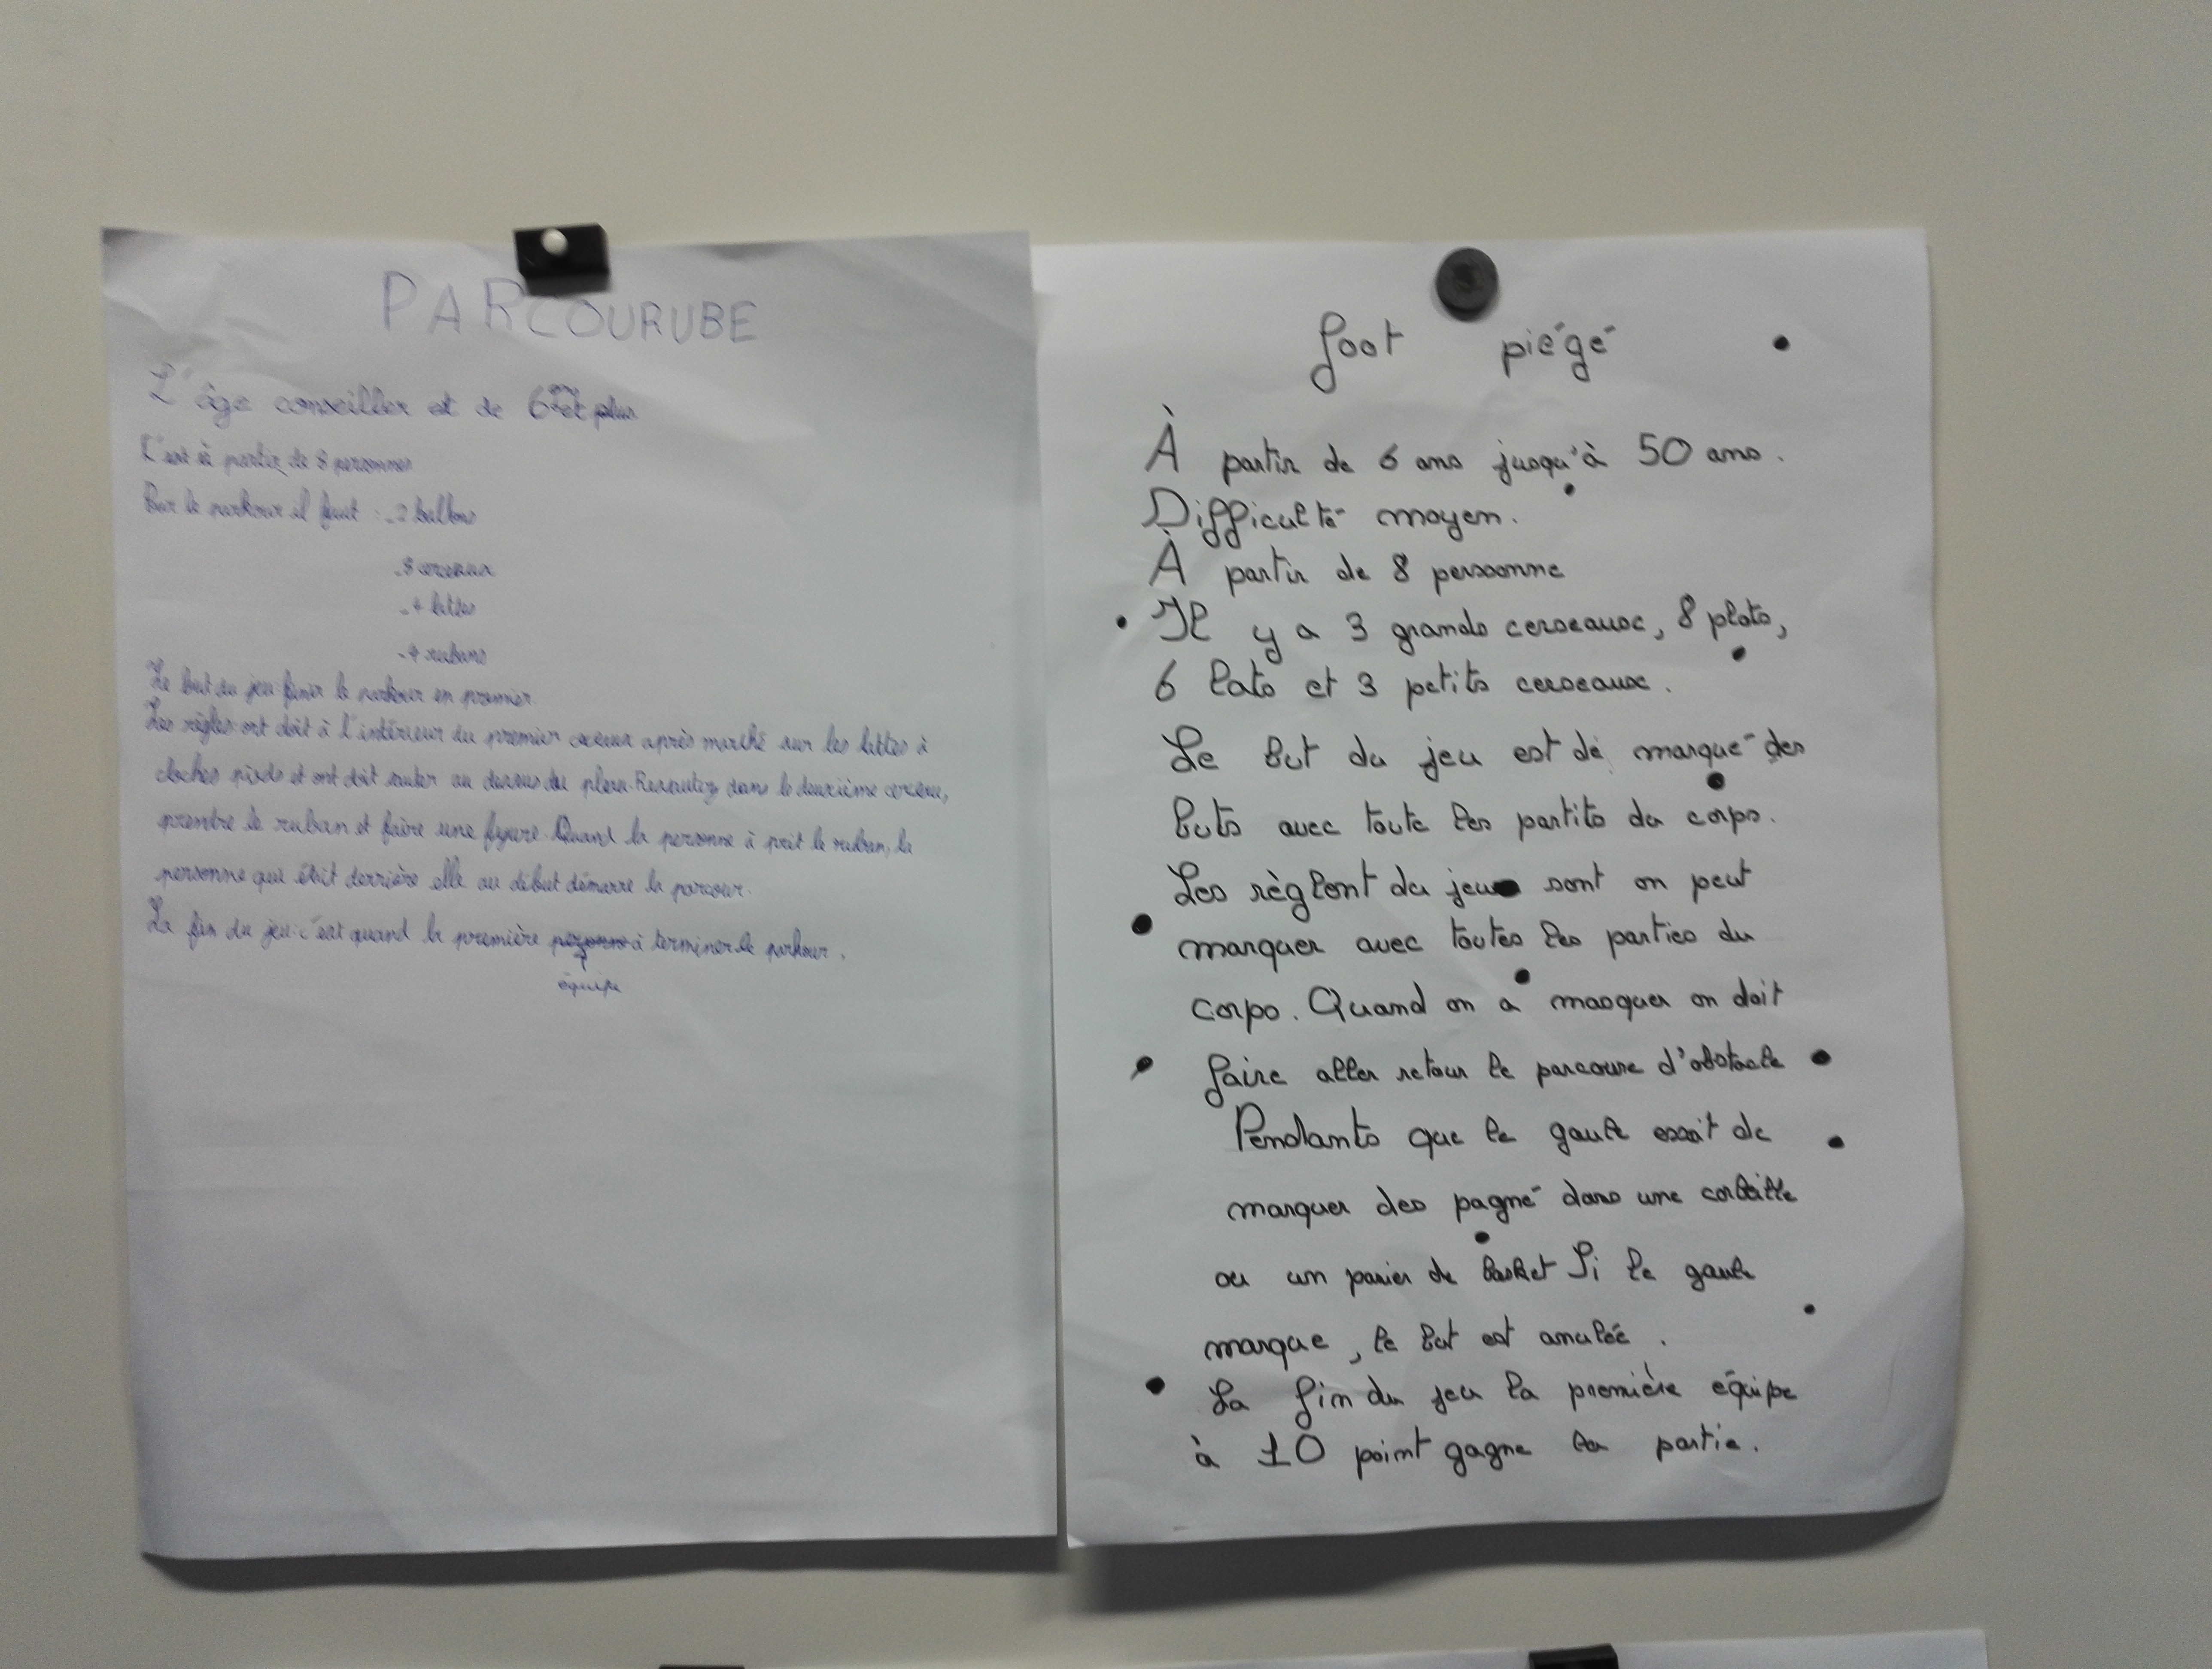 PARCOURUBE
L'âge conseiller est de 6 ans et plus
C'est à partir de 8 personnes
Pour le parkour il faut : - 2 ballons
- 8 cerceaux
- 4 lattes
- 4 rubans
Le but du jeu: finir le parkour en premier
Les règles: ont doit à l'intérieur du premier cerceau après marché sur les lattes à
cloches pieds et ont doit sauter au dessus du plau. Ressautez dans le deuxième cerceau,
prendre le ruban et faire une figure. Quand la personne à prit le ruban, la
personne que était derrière elle au début démarre le parcour.
La fin du jeu: c'est quand la première personne à terminer le parkour.
équipe
foot piégé
À partir de 6 ans jusqu'à 50 ans.
Difficulté moyen.
À partir de 8 personne
Il y a 3 grands cerseause, 8 plots,
6 lats et 3 petits cerseause.
Le but du jeu est de marqué des
buts avec toute les partits du corps.
Les règlent du jeu sont on peut
marquer avec toutes les parties du
corps. Quand on a masquer on doit
faire aller retour le parcoure d'obstacle
Pendants que le gaule essait de
marquer des pagné dans une corbeille
ou un panier de basket Si le gaule
marque, le but est anulée.
La fin du jeu la première équipe
à 10 point gagne la partie.